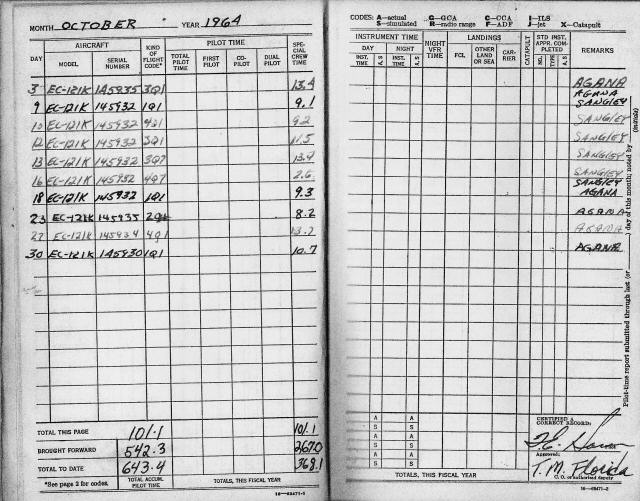 MONTH OCTOBER YEAR 1964
AIRCRAFT PILOT TIME
DAY MODEL SERIAL NUMBER KIND OF FLIGHT CODE* TOTAL PILOT TIME FIRST PILOT CO-PILOT DUAL PILOT SPECIAL CREW TIME
3 EC-121K 145935 3Q1 13.4
9 EC-121K 145932 1Q1 9.1
10 EC-121K 145932 4Q1 9.2
12 EC-121K 145932 3Q1 11.5
13 EC-121K 145932 3Q7 13.4
16 EC-121K 145932 4Q7 2.6
18 EC-121K 145932 1Q1 9.3
23 EC-121K 145935 2Q1 8.2
27 EC-121K 145934 4Q1 13.7
30 EC-121K 145930 1Q1 10.7
TOTAL THIS PAGE 101.1 101.1
BROUGHT FORWARD 542.3 267.0
TOTAL TO DATE 643.4 368.1
*See page 2 for codes. TOTAL ACCUM. PILOT TIME TOTALS, THIS FISCAL YEAR
CODES: A—actual G—GCA C—CCA I—ILS
S—simulated R—radio range F—ADF J—jet X—Catapult
INSTRUMENT TIME NIGHT VFR TIME LANDINGS CATAPULT STD INST. APPR. COMPLETED REMARKS
DAY NIGHT FCL OTHER LAND OR SEA CARRIER NO. TYPE A, S
INST. TIME A, S INST. TIME A, S
AGANA
AGANA
SANGLEY
SANGLEY
SANGLEY
SANGLEY
SANGLEY
SANGLEY
AGANA
AGANA
AGANA
AGANA
A A
S S
A A
S S
A A
S S
CERTIFIED A CORRECT RECORD:
Approved:
T. M. Florida
C. O. or authorized deputy
TOTALS, THIS FISCAL YEAR
Pilot-time report submitted through last (or) day of this month; noted by (Initials)